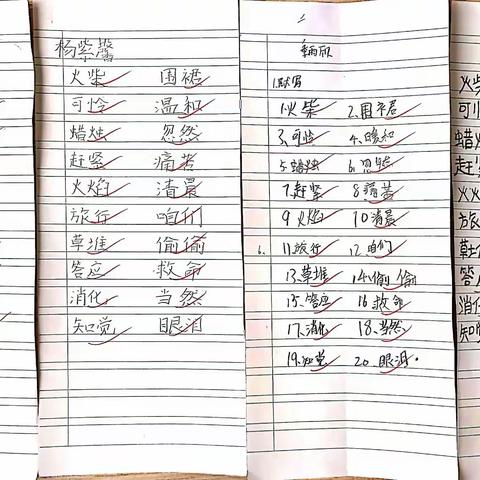 杨紫馨
火柴 围裙
可怜 温和
蜡烛 忽然
赶紧 痛苦
火焰 清晨
旅行 咱们
草堆 偷偷
答应 救命
消化 当然
知觉 眼泪
1.默写
1.火柴 2.围裙
3.可怜 4.暖和
5.蜡烛 6.忽然
7.赶紧 8.痛苦
9.火焰 10.清晨
11.旅行 12.咱们
13.草堆 14.偷偷
15.答应 16.救命
17.消化 18.当然
19.知觉 20.眼泪.
火柴
可怜
蜡烛
赶紧
火
旅
草堆
答
消化
知觉